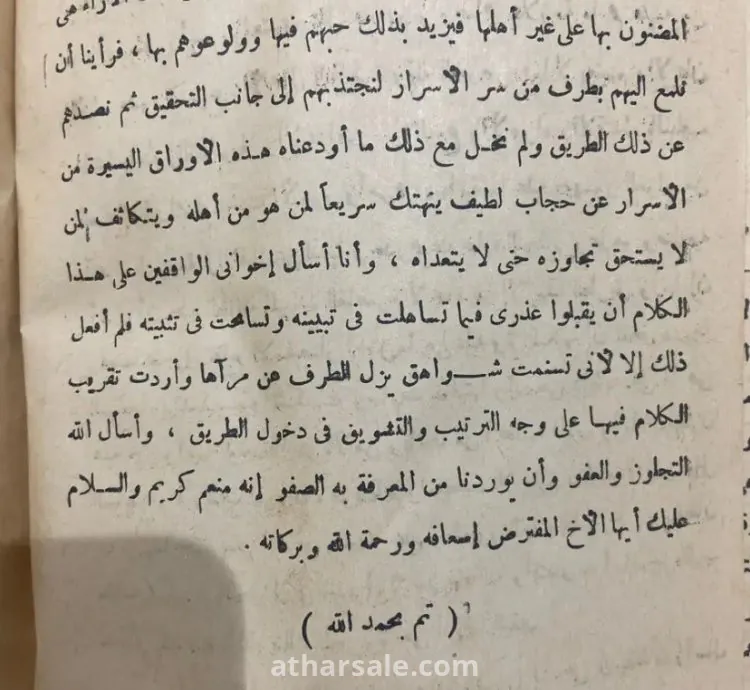 الآراء هي
المضنون بها على غير أهلها فيزيد بذلك حبهم فيها وولوعهم بها ، فرأينا أن
نلمع اليهم بطرف من سر الاسرار لنجتذبهم إلى جانب التحقيق ثم نصدهم
عن ذلك الطريق ولم نخل مع ذلك ما أودعناه هذه الاوراق اليسيرة من
الاسرار عن حجاب لطيف ينهتك سريعاً لمن هو من أهله ويتكاثف لمن
لا يستحق تجاوزه حتى لا يتعداه ، وأنا أسأل إخوانى الواقفين على هذا
الكلام أن يقبلوا عذرى فيما تساهلت فى تبيينه وتسامحت فى تثبيته فلم أفعل
ذلك إلا لأنى تسنمت شواهق يزل الطرف عن مرآها وأردت تقريب
الكلام فيها على وجه الترتيب والتشويق فى دخول الطريق ، وأسأل الله
التجاوز والعفو وأن يوردنا من المعرفة به الصفو إنه منعم كريم والسلام
عليك أيها الأخ المفترض إسعافه ورحمة الله وبركاته .
( تم بحمد الله )
atharsale.com